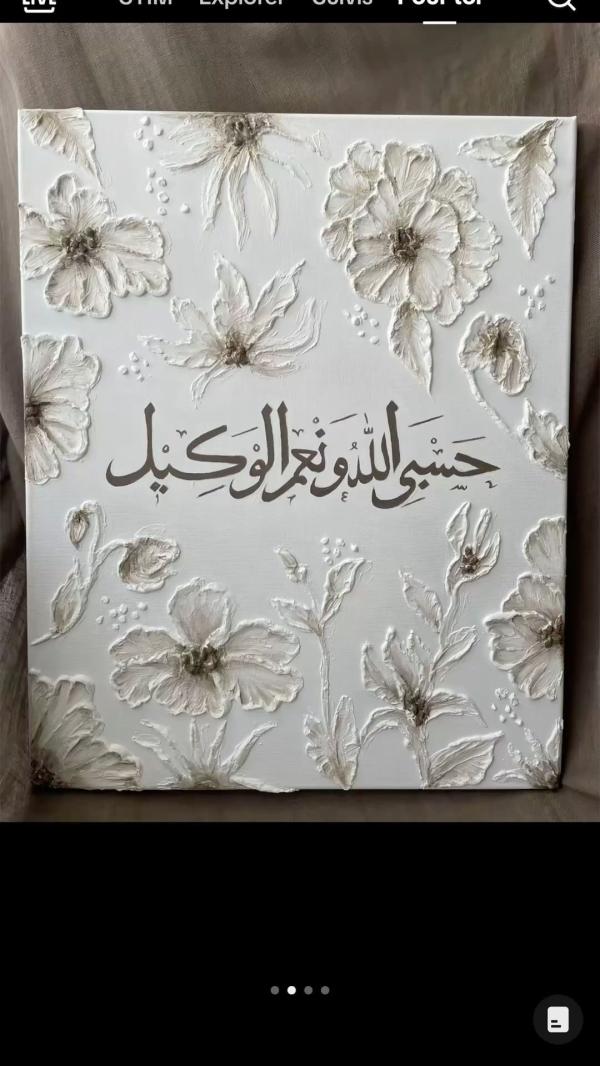 LIVE STIM Explorer Suivis Pour toi
حسبي الله ونعم الوكيل